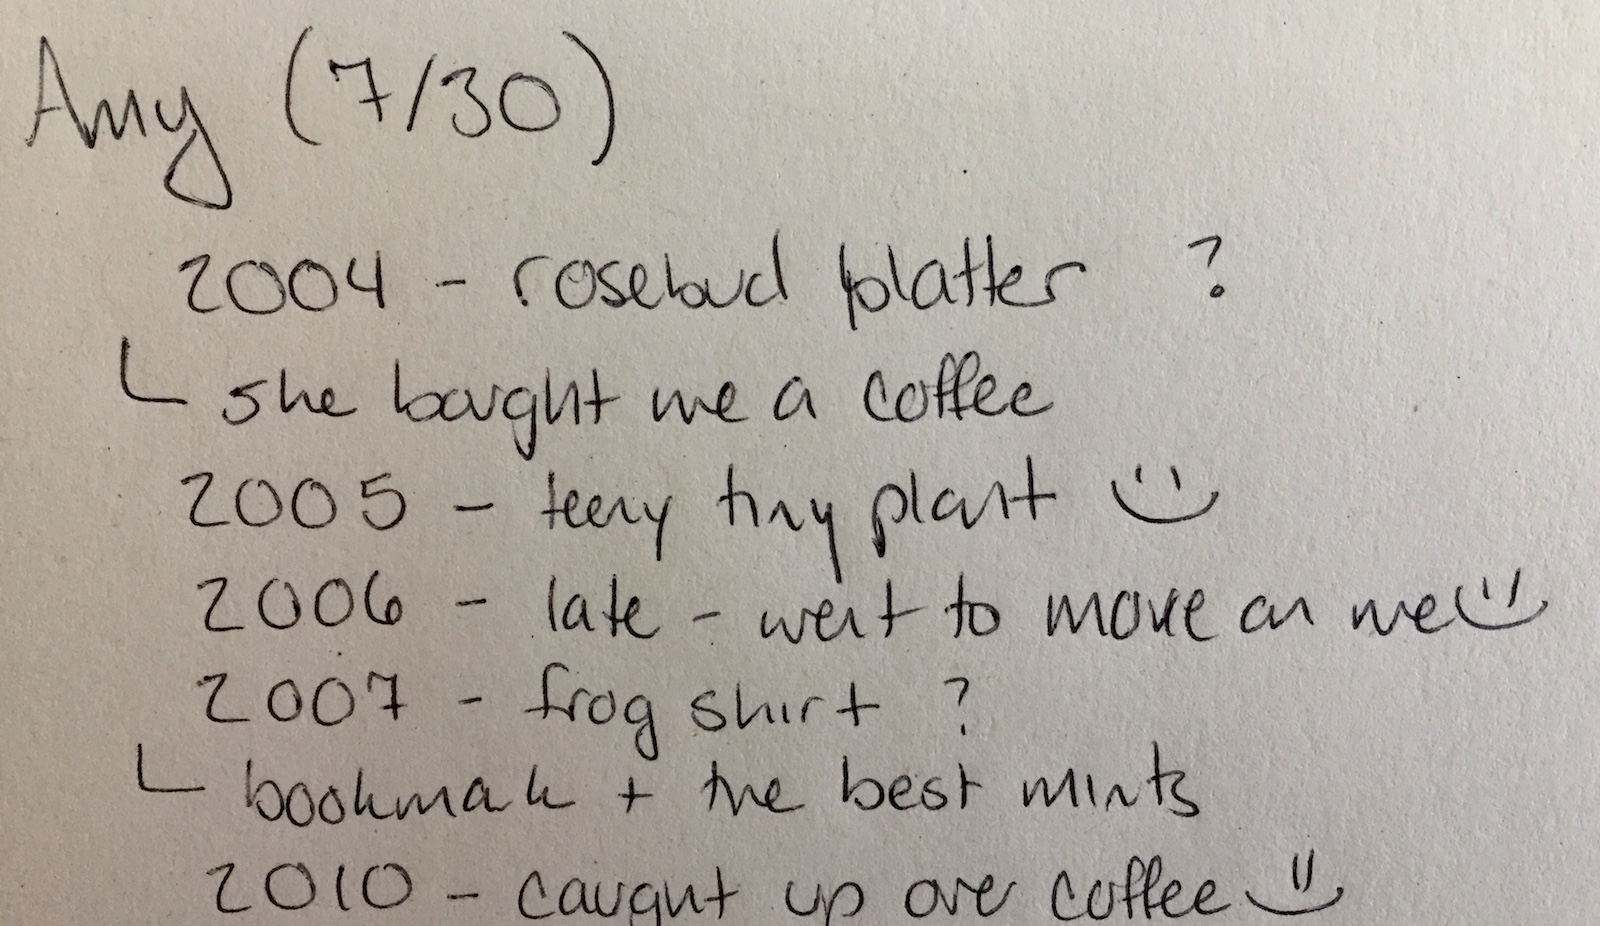 Amy (7/30)
2004 - rosebud platter ?
she bought me a coffee
2005 - teeny tiny plant
2006 - late - went to move on me
2007 - frog shirt ?
bookmark + the best mints
2010 - caught up over coffee